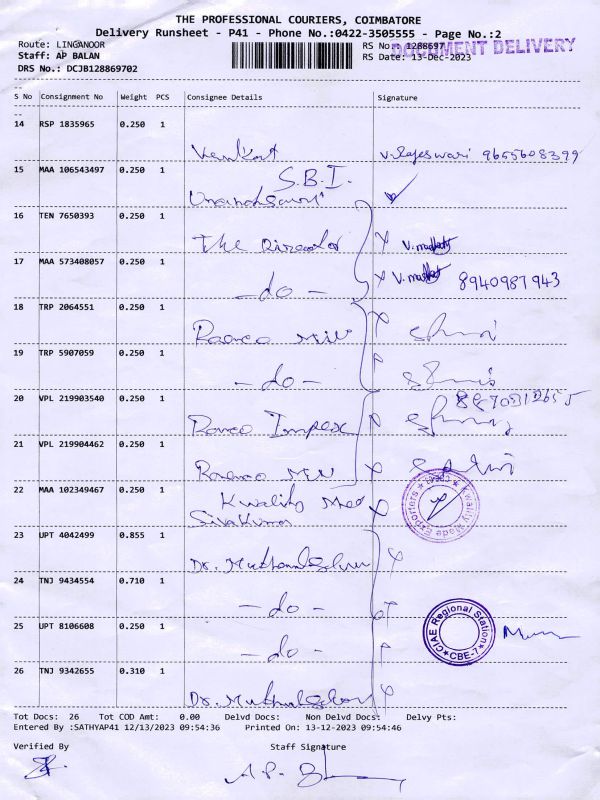 THE PROFESSIONAL COURIERS, COIMBATORE
Delivery Runsheet - P41 - Phone No.:0422-3505555 - Page No.:2
Route: LINGANOOR RS No.: 1288697 DOCUMENT DELIVERY
Staff: AP BALAN RS Date: 13-Dec-2023
DRS No.: DCJB128869702
S No Consignment No Weight PCS Consignee Details Signature
14 RSP 1835965 0.250 1
Venkat V. Rajeswari 9655608399
15 MAA 106543497 0.250 1
S.B.I.
16 TEN 7650393 0.250 1
The Director
17 MAA 573408057 0.250 1
-do- 8940987943
18 TRP 2064551 0.250 1
19 TRP 5907059 0.250 1
-do-
20 VPL 219903540 0.250 1
Impex
21 VPL 219904462 0.250 1
22 MAA 102349467 0.250 1
Kwality Med
Sivakumar
Kwality Mede Exporters
23 UPT 4042499 0.855 1
24 TNJ 9434554 0.710 1
-do-
25 UPT 8106608 0.250 1
-do-
CIAE Regional Station
CBE-7
26 TNJ 9342655 0.310 1
Tot Docs: 26 Tot COD Amt: 0.00 Delvd Docs: Non Delvd Docs: Delvy Pts:
Entered By :SATHYAP41 12/13/2023 09:54:36 Printed On: 13-12-2023 09:54:46
Verified By Staff Signature